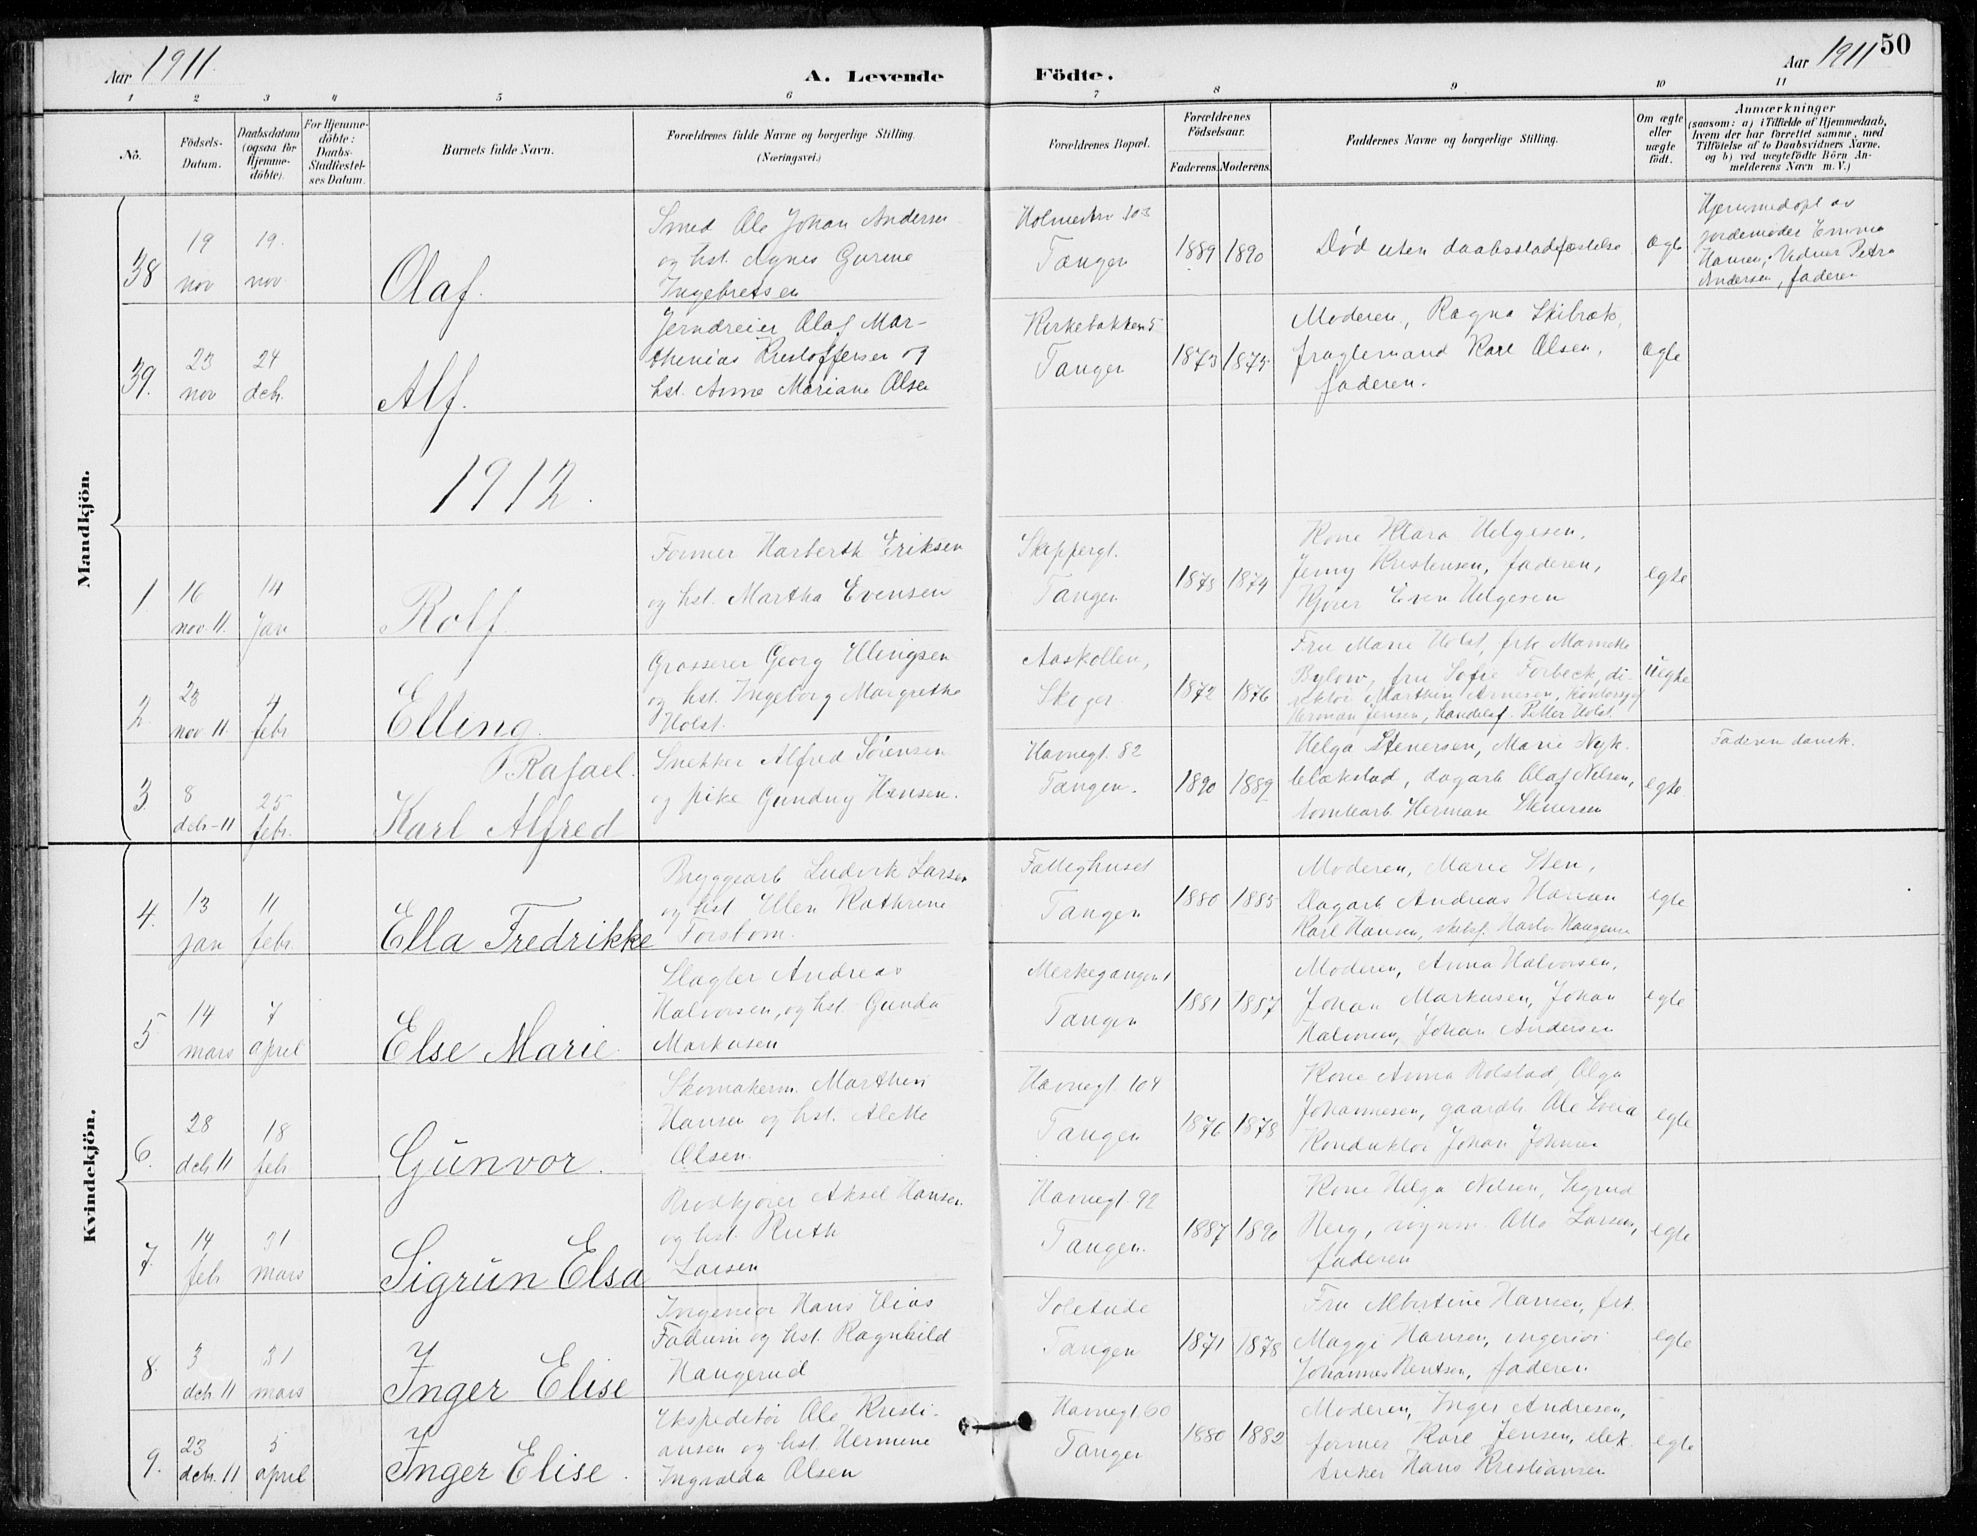 Aar 1911. A. Levende Födte. Aar 1911 50
1 2 3 4 5 6 7 8 9 10 11
No.
Födsels-Datum.
Daabsdatum (ogsaa for Hjemmedöbte).
For Hjemmedöbte: Daabs-Stadfæstelses Datum.
Barnets fulde Navn.
Forældrenes fulde Navne og borgerlige Stilling. (Næringsvei.)
Forældrenes Bopæl.
Forældrenes Födselsaar.
Faderens. Moderens.
Faddernes Navne og borgerlige Stilling.
Om ægte eller uægte födt.
Anmærkninger
(saasom: a) i Tilfælde af Hjemmedaab,
hvem der har forrettet samme, med
Tilföielse af to Daabsvidners Navne.
og b) ved uægtefödte Börn An-
melderens Navn m. V.)
Mandkjön.
38 19 nov 19. nov Olaf.
Smed Ole Johan Andersen
og hst. Agnes Gurine
Ingebretsen
Tangen
1889 1890
Død uten daabsstadfæstelse
ægte
Hjemmedøpt av
jordemoder Emma
Hansen, Vidner Petra
Andersen, faderen
39. 23 nov 24 dch. Alf.
Jerndreier Olaf Mar-
thinias Kristoffersen og
hst. Anne Mariane Olsen
Kirkebakken 5
Tangen
1873 1875
Moderen, Ragna Skibræk,
fragtemand Karl Olsen,
faderen.
ægte
1912.
1 16 nov 11. 14 jan Rolf
Former Harberth Eriksen
og hst. Martha Evensen
Skippergt.
Tangen
1873 1874
Kone Klara Helgesen,
Jenny Kristensen, faderen,
Kjører Even Helgesen
egte
2. 23 nov 11. 4 febr Elling.
Grosserer Georg Ellingsen
og hst. Ingeborg Margrethe
Holst.
Aaskollen,
Skoger
1872 1876
Fru Marie Holst, frk
Bylow, fru Sofie Forbeck, di-
rektør Marthin Arnesen,
Herman Jensen, Petter Holst.
uegte
3 8 dcb-11 25 febr. Rafael.
Karl Alfred
Snekker Alfred Sørensen
og pike Gundny Hansen.
Havnegt. 82
Tangen.
1890 1889
Helga Stenersen, Marie
dagarb Olaf Nilsen,
tomtearb Herman Stenersen
egte
Faderen dansk.
Kvindekjön.
4. 13 jan 11 febr Ella Fredrikke
Bryggearb Ludvik Larsen
og hst Ellen Kathrine
Forsbom.
Fattighuset
Tangen
1880 1885
Moderen, Marie Sten,
Dagarb Andreas Hansen
Karl Hansen,
egte
5 14 mars 7 april Else Marie.
Slagter Andreas
Halvorsen, og hst. Gunda
Markusen
Merkegangen 1
Tangen
1881 1887
Moderen, Anna Halvorsen,
Johan Markusen, Johan
Halvorsen, Johan Andersen
egte
6. 28 dcb 11 18 feb Gunvor.
Skomakerm. Marthin
Hansen og hst. Alette
Olsen.
Havnegt 104
Tangen
1876 1878
Kone Anna Rolstad, Olga
Johannesen, gaardb. Ole Sveia
Konduktør Johan Johnsen
egte
7. 14 feb 31 mars Sigrun Elsa
Brødkjører Aksel Hansen
og hst. Ruth
Larsen
Havnegt 92
Tangen.
1887 1890
Kone Helga Nilsen, Sigrud
Berg, vognm. Otto Larsen,
faderen
egte
8. 3 dcb 11 31 mars Inger Elise
Ingeniør Hans Elias
Fadum og hst. Ragnhild
Haugerud
Solitude
Tangen
1871 1878
Fru Albertine Hansen, frk.
Maggi Hansen, ingeniør
Johannes Bentsen, faderen
egte
9. 23 dcb. 11 5 april Inger Elise.
Ekspeditør Ole Kristi-
ansen og hst. Hermine
Ingvalda Olsen
Havnegt. 60
Tangen
1880 1882
Moderen, Inger Andresen,
former Karl Jensen, elek-
triker Hans Kristiansen
egte